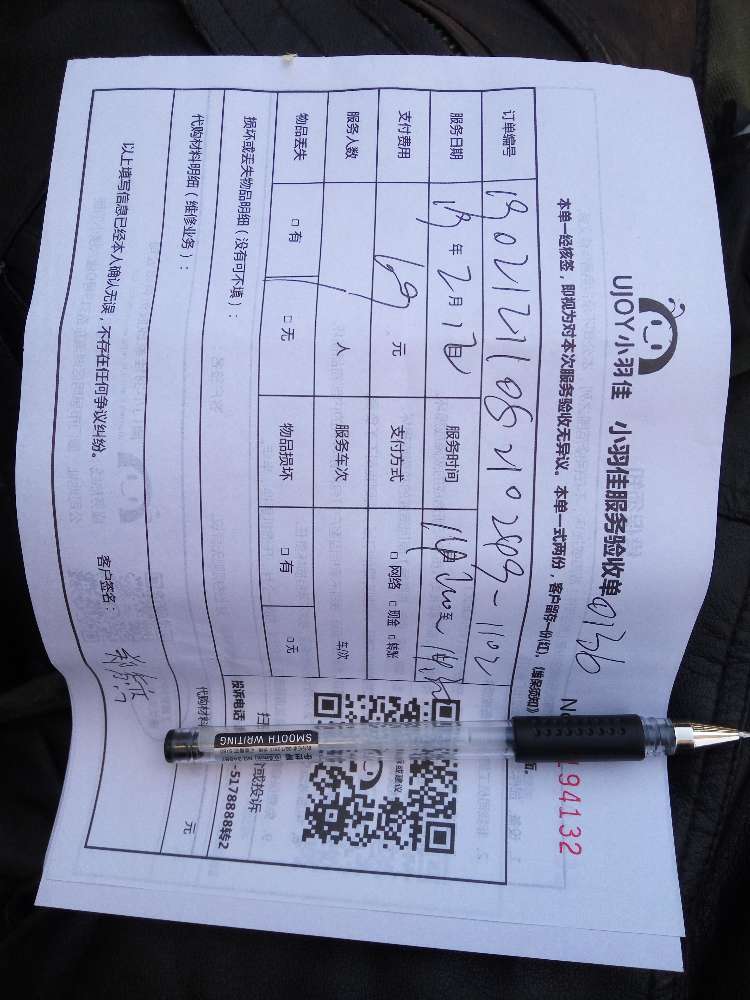 UJOY小羽佳 小羽佳服务验收单 0136
194132
本单一经核签，即视为对本次服务验收无异议。本单一式两份，客户留存一份(红)。《维保须知》
订单编号
服务日期 19年2月12日 服务时间
支付费用 69元 支付方式 □网络 □现金 □转账
服务人数 1人 服务车次 车次
物品丢失 □有 □无 物品损坏 □有 □无
损坏或丢失物品明细（没有可不填）：
投诉电话 -5178888转2
代购材料明细（维修业务）： 代购材料 元
以上填写信息已经本人确认无误，不存在任何争议纠纷。 客户签名：
或建议
扫 或投诉
SMOOTH WRITING